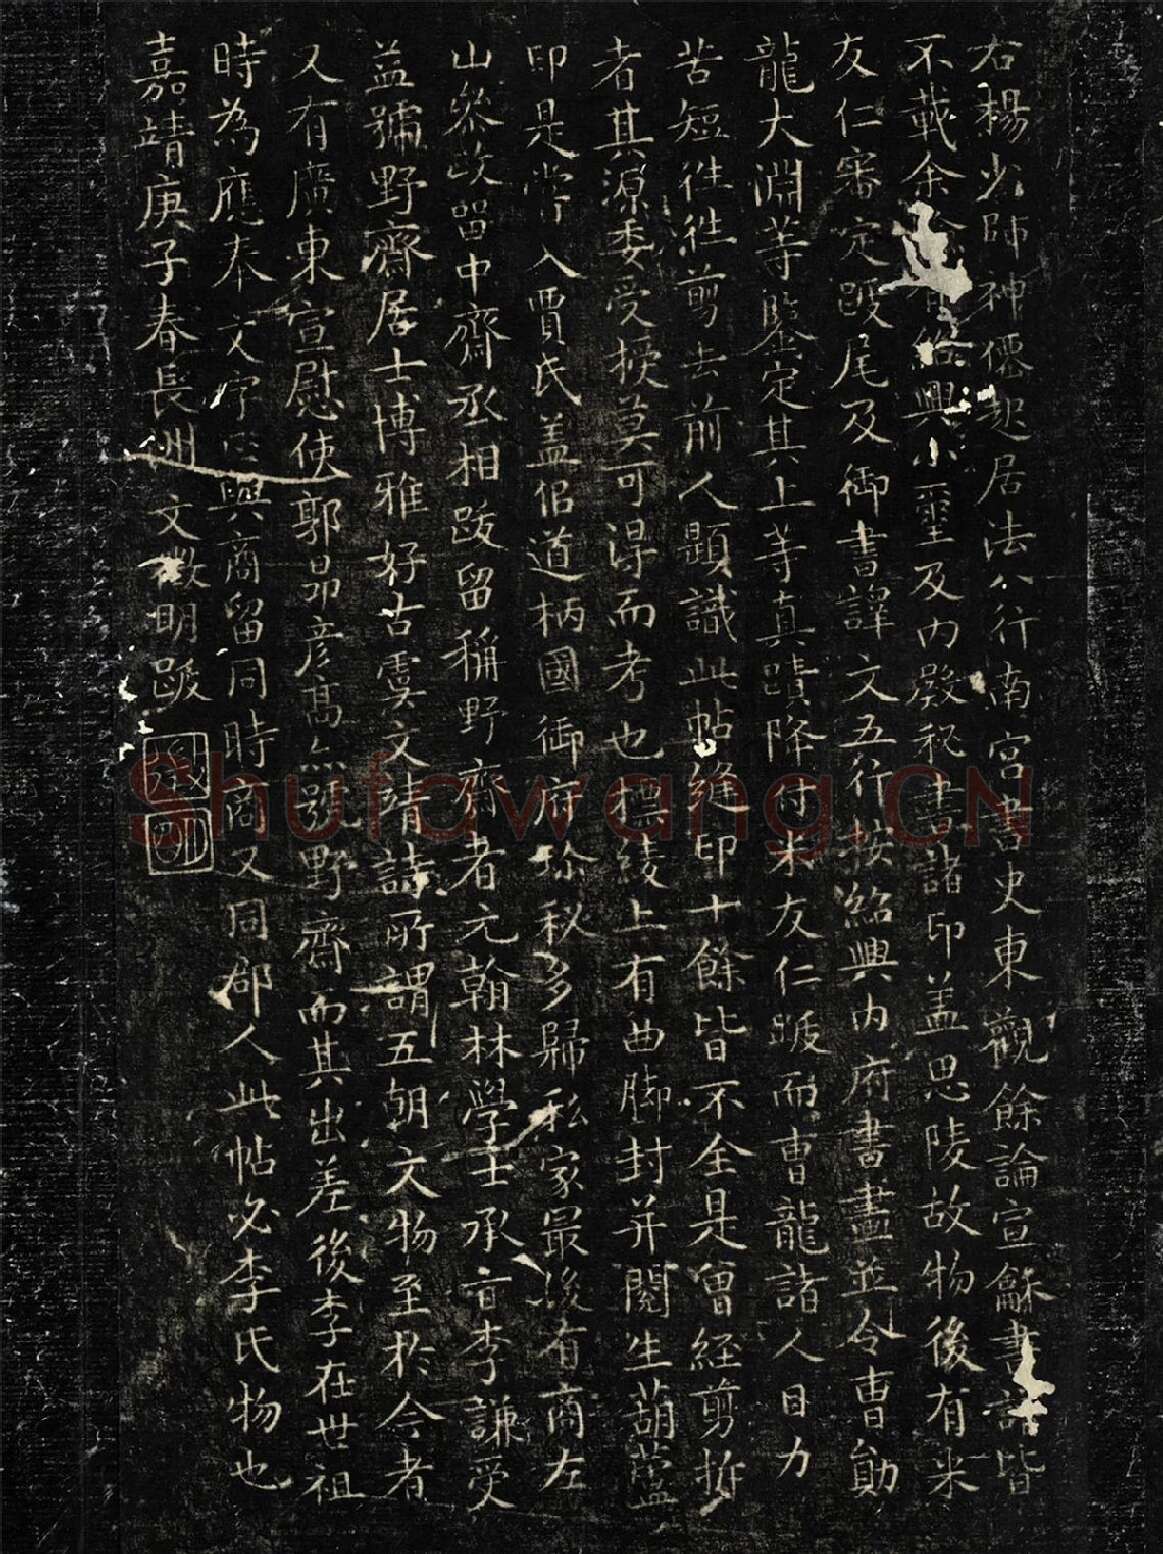 右楊少師神僊起居法八行南宮書史東觀餘論宣龢書譜皆
不載余有紹興小璽及內殿祕書諸印盖思陵故物後有米
友仁審定跋尾及御書譯文五行按紹興內府書畫並令曹勛
龍大淵等鑒定其上等真蹟降付米友仁跋而曹龍諸人目力
苦短徃徃剪去前人題識此帖縫印十餘皆不全是曾經剪拆
者其源委受授莫可得而考也標綾上有曲脚封并閱生葫蘆
印是嘗入賈氏盖侂道柄國御府珍秘多歸私家最後有商左
山參政留中齋丞相跋留稱野齋者元翰林學士承旨李謙受
益號野齋居士博雅好古虞文靖詩所謂五朝文物至於今者
又有廣東宣慰使郭昴彥高亦號野齋而其出差後李在世祖
時為應奉文字與商留同時商又同郡人此帖必李氏物也
嘉靖庚子春長洲文徵明跋
徵明
Shufawang.CN